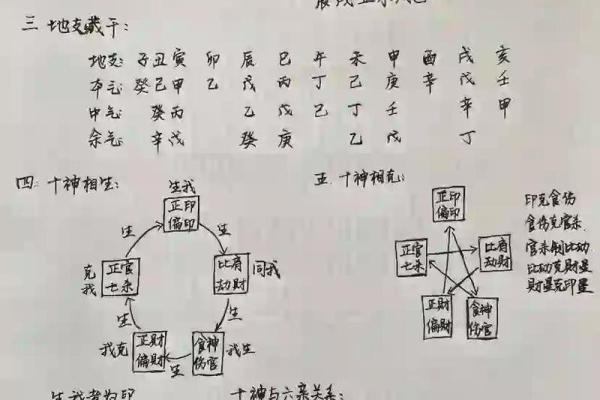 三 地支载干:
地支: 子 丑 寅 卯 辰 巳 午 未 申 酉 戌 亥
本气: 癸 己 甲 乙 戊 丙 丁 己 庚 辛 戊 壬
中气: 癸 丙 乙 戊 己 丁 壬 辛 甲
余气: 辛 戊 癸 庚 乙 戊 丁
四. 十神相生:
生我
正印
偏印
生
生
克我
正官
七杀
比肩
劫财
同我
生
生
我克
正财
偏财
生
食神
伤官
我生
五. 十神相克:
正印
偏印
正官
七杀
比肩
劫财
正财
偏财
食神
伤官
印克食伤
食伤克官杀
官杀制比劫
比劫克财星
财星克印星
生我者为印
十神与六亲关系: